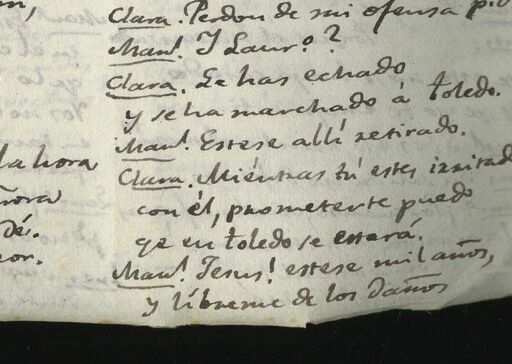 Clara. Perdon de mi ofensa
Man.l Y Laur.o?
Clara. Le has echado
y se ha marchado á Toledo.
Man.l Estese allí retirado.
la hora
Clara. Miéntras tú estes irritado
con él, prometerte puedo
qe en Toledo se estará.
Man.l Jesus! estese mil años,
y líbreme de los daños